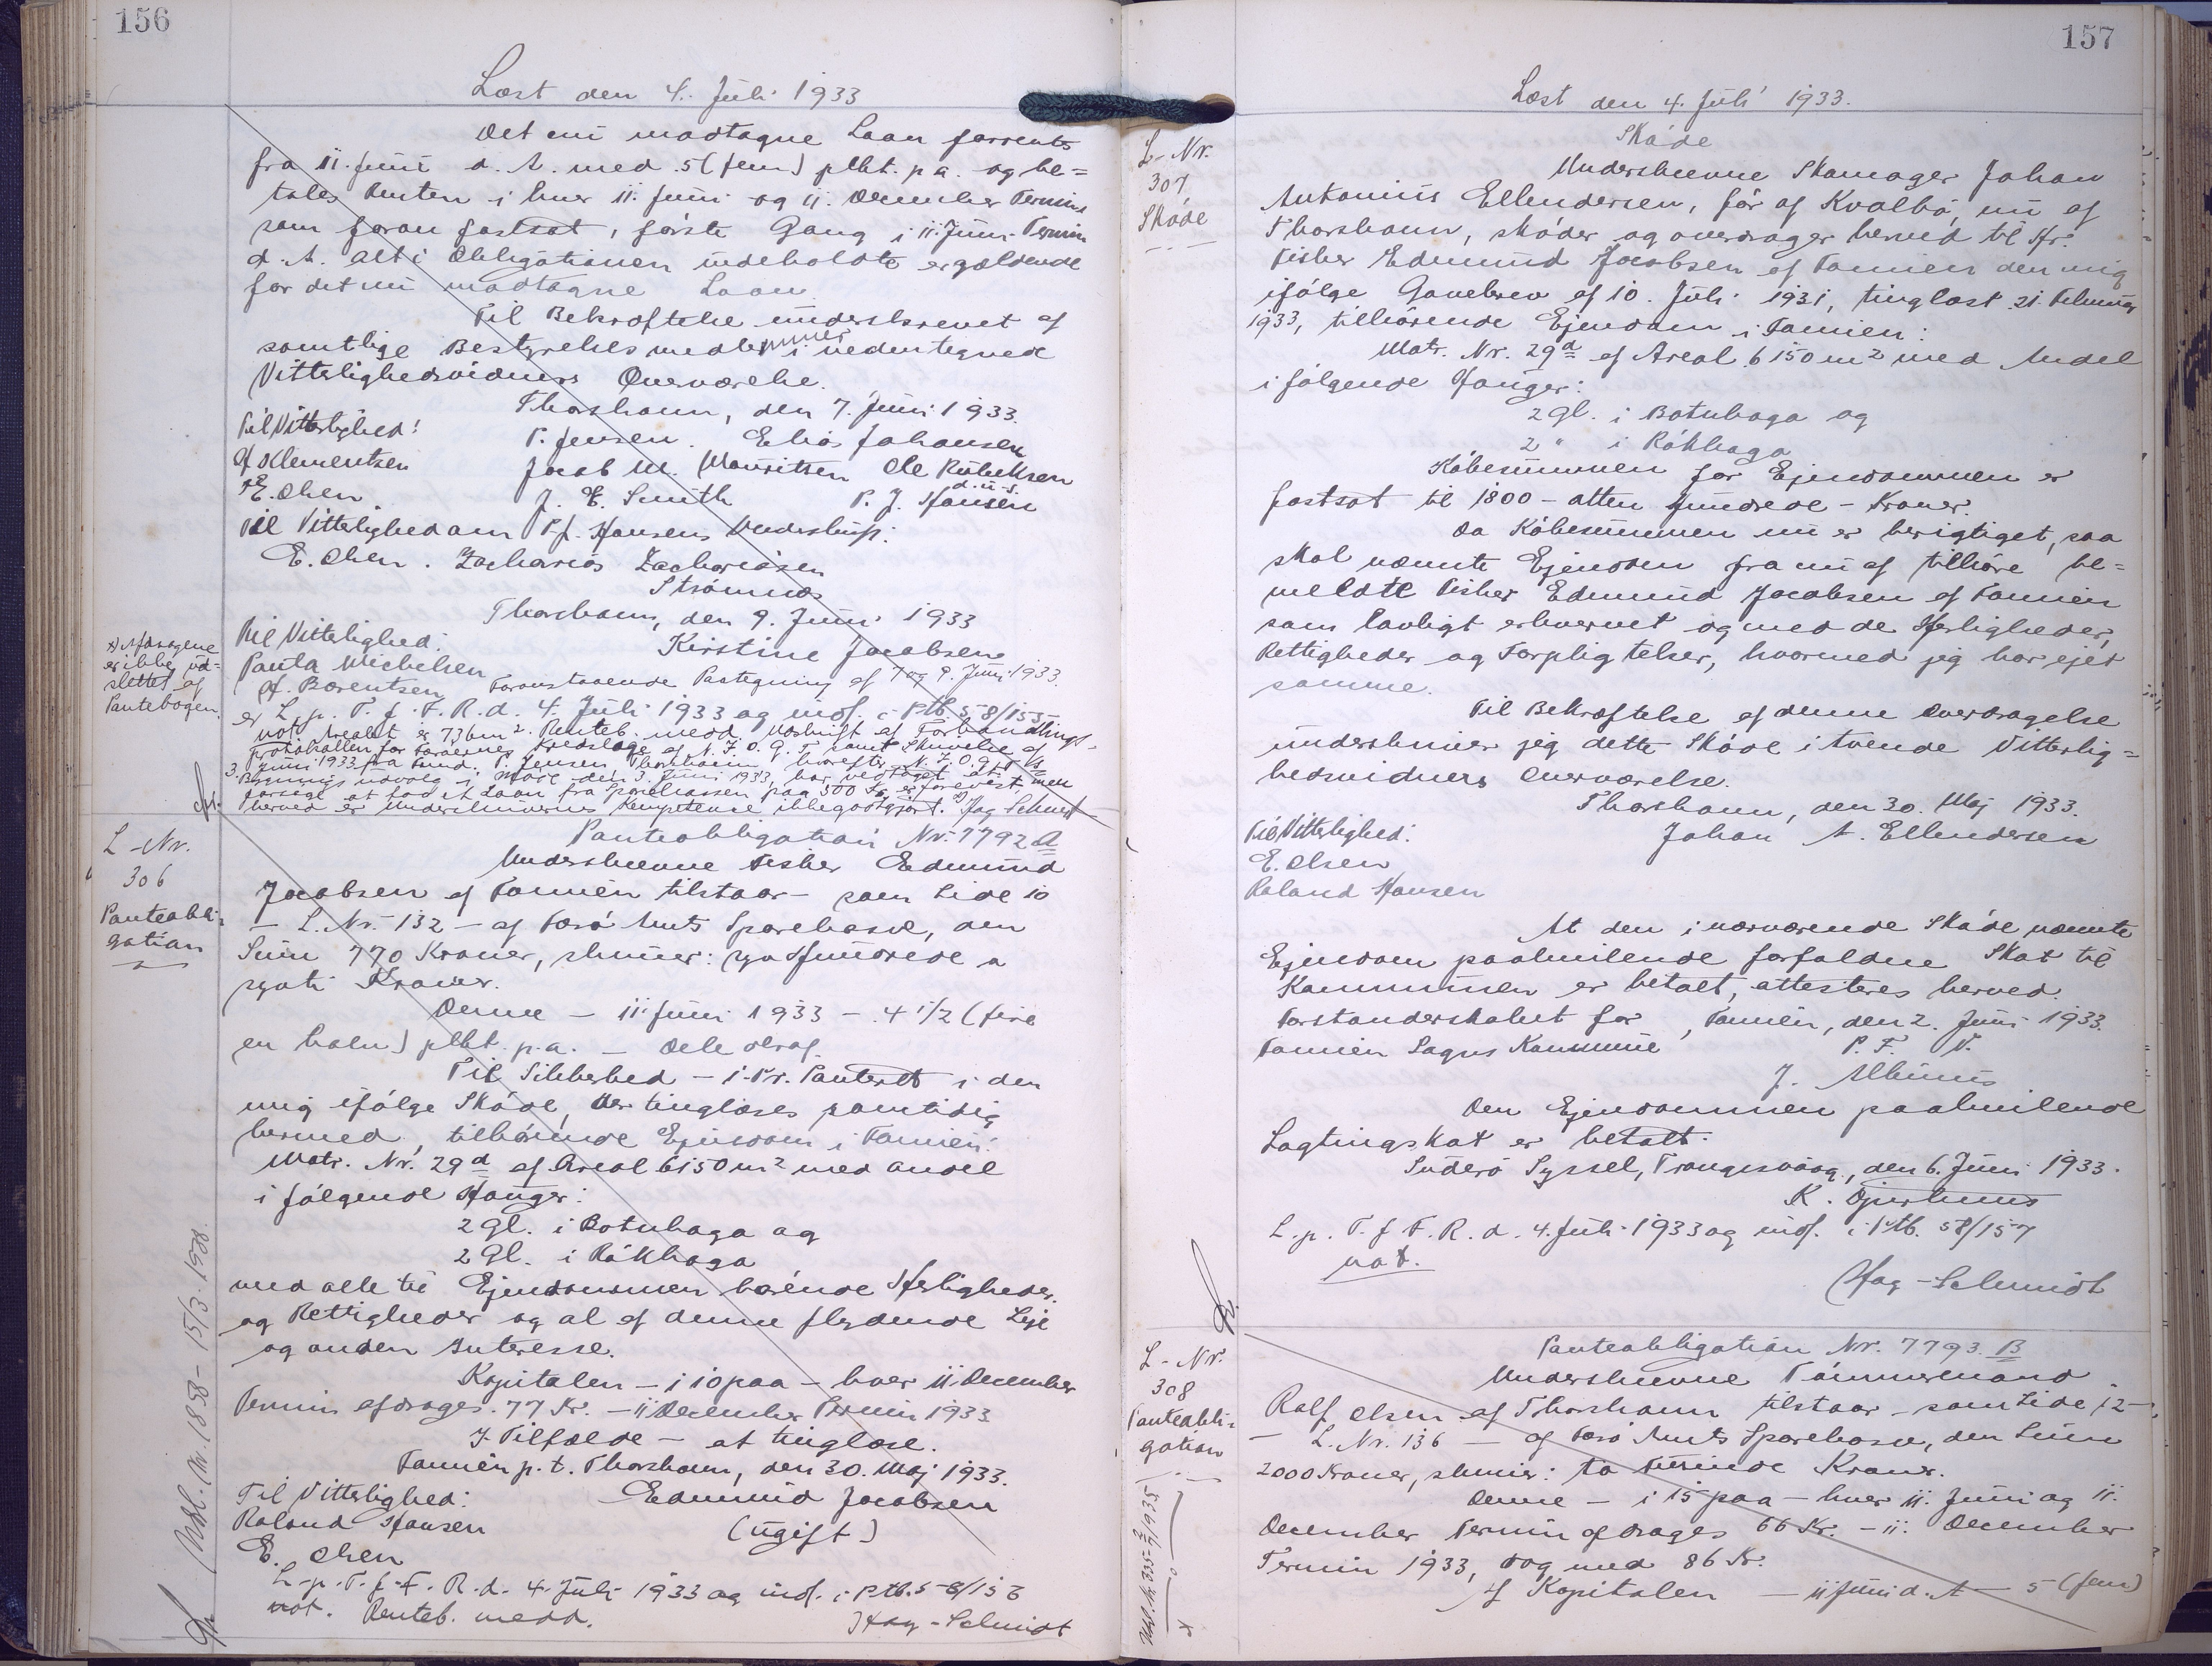 156
Læst den 4. Juli 1933
Det nu modtagne Laan forrentes
fra 11. Juni d. A. med 5 (fem) pCt. p a. og be=
tales Renten i hver 11. Juni og 11. December Termin
som foran fastsat, første Gang i 11. Juni Termin
d. A. Alt i Obligationen indeholdte er gældende
for det nu modtagne Laan.
Til Bekræftelse underskrevet af
samtlige Bestyrelsesmedlemmer i nedentegnede
Vitterlighedsvidners Overværelse.
Thorshavn, den 7. Juni 1933.
Til Vitterlighed:
P. Jensen. Elias Johansen
Clementsen
Jacob M. Mouritsen Ole Rubeksen
E. Olsen
J. E. Smith P. J. Hansen
d. u. s.
Til Vitterlighed om P. J. Hansens Underskrift:
E. Olsen. Zacharias Zachariasen
Strømnæs
Thorshavn, den 9. Juni 1933
Til Vitterlighed:
Kirstine Jacobsen
Paula Michelsen
H. Berentsen
Foranstaaende Paategning af 7 og 9. Juni 1933.
er L. p. T. f. F. R. d. 4. Juli 1933 og indf. i Ptb. 58/155
not. Arealet er 736 m². Renteb. medd. Udskrift af Forhandlings-
Protokollen for Færøernes Kredsloge af N. I. O. G. T. samt Skrivelse af
3. Juni 1933 fra P. Jensen Thorshavn hvorefter N. I. O. G. T's
Bygningsudvalg i Møde den 3. Juni 1933, har vedtaget at
forsøge at faa et Laan fra Sparekassen paa 500 Kr. er forevist, men
herved er Underskrivernes Kompetence ikke godtgjort. x) Hag-Schmidt
x) Afdragene
er ikke ud=
slettet af
Pantebogen.
L-Nr.
306
Panteobli-
gation
Panteobligation Nr. 7792 A
Underskrevne Fisker Edmund
Jacobsen af Famien tilstaar - som Side 10
- L. Nr. 132 - af Færø Amts Sparekasse, den
Sum 770 Kroner, skriver: syv Hundrede a
syvti Kroner.
Denne - 11. Juni 1933 - 4 1/2 (fire
en halv) pCt. p.a. - Dele deraf.
Til Sikkerhed - 1. Pr. Panteret i den
mig ifølge Skøde, der tinglæses samtidig
hermed, tilhørende Ejendom i Famien:
Matr. Nr. 29d af Areal 6150 m² med Andel
i følgende Hauger:
2 Gl. i Botnhaga og
2 Gl. i Rókhaga
med alle til Ejendommen hørende Herligheder.
og Rettigheder og al af denne flydende Leje
og anden Interesse.
Kapitalen - i 10 paa - hver 11. December
Termin afdrages 77 Kr. - 11 December Termin 1933.
I Tilfælde - at tinglæse.
Famien p. t. Thorshavn, den 30. Maj 1933.
Til Vitterlighed:
Edmund Jacobsen
Roland Hansen
(ugift)
E. Olsen
L. p. T. f. F. R. d. 4. Juli 1933 og indf. i Ptb. 58/156
not. Renteb. medd.
Hag-Schmidt
Udsl. Nr. 1858 - 15/3. 1938.
157
Læst den 4. Juli 1933.
L-Nr.
307
Skøde
Skøde
Underskrevne Skomager Johan
Antonius Ellendersen, før af Kvalbø, nu af
Thorshavn, skøder og overdrager herved til Hr.
Fisker Edmund Jacobsen af Famien den mig
ifølge Gavebrev af 10. Juli 1931, tinglæst 21. Februar
1933, tilhørende Ejendom i Famien:
Matr. Nr. 29d af Areal 6150 m² med Andel
i følgende Hauger:
2 Gl. i Botnhaga og
2 " i Rókhaga
Købesummen for Ejendommen er
fastsat til 1800 - atten Hundrede - Kroner.
Da Købesummen nu er berigtiget, saa
skal nævnte Ejendom fra nu af tilhøre be=
meldte Fisker Edmund Jacobsen af Famien
som lovligt erhvervet og med de Herligheder,
Rettigheder og Forpligtelser, hvormed jeg har ejet
samme.
Til Bekræftelse af denne Overdragelse
underskriver jeg dette Skøde i tvende Vitterlig=
hedsvidners Overværelse.
Thorshavn, den 30. Maj 1933.
Til Vitterlighed:
Johan A. Ellendersen
E. Olsen
Roland Hansen
At den i nærværende Skøde nævnte
Ejendom paahvilende forfaldne Skat til
Kommunen er betalt, attesteres herved.
Forstanderskabet for Famien, den 2. Juni 1933.
Famien Sogns Kommune
P. F. V.
J. Albinus
Den Ejendommen paahvilende
Lagtingskat er betalt.
Suderø Syssel, Trangisvaag, den 6. Juni 1933.
K. Djurhuus
L. p. T. f. F. R. d. 4. Juli 1933 og indf. i Ptb. 58/157
not.
Hag-Schmidt
L-Nr.
308
Panteobli=
gation
Panteobligation Nr. 7793. B
Underskrevne Tømmermand
Rolf Olsen af Thorshavn tilstaar - som Side 12-
- L. Nr. 136 - af Færø Amts Sparekasse, den Sum
2000 Kroner, skriver: to Tusinde Kroner.
Denne - i 15 paa - hver 11. Juni og 11.
December Termin afdrages 66 Kr. - 11. December
Termin 1933, dog med 86 Kr.
Af Kapitalen - 11 Juni d. A - 5 (fem)